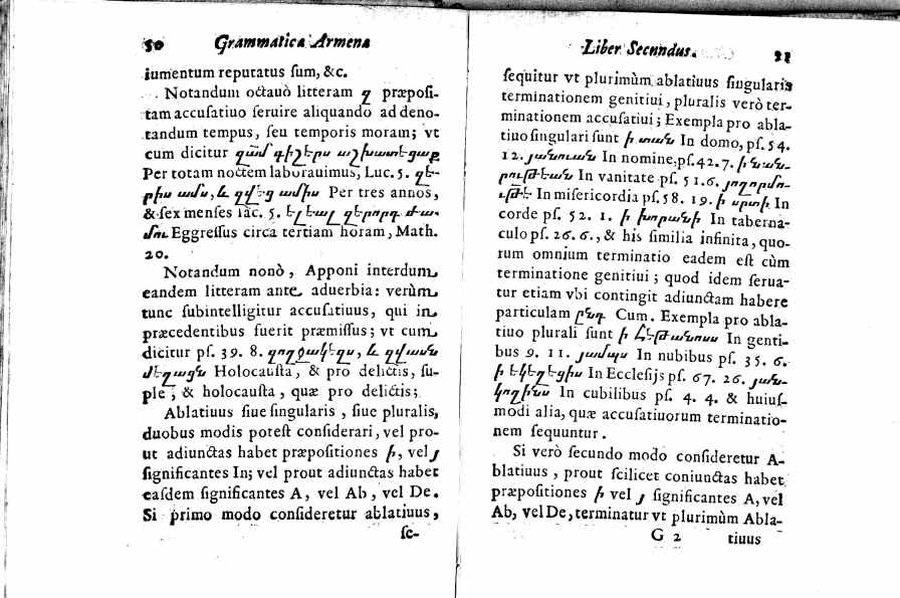 50 Grammatica Armena
iumentum reputatus sum, &c.
Notandum octauò litteram զ præposi-
tam accusatiuo seruire aliquando ad deno-
tandum tempus, seu temporis moram; vt
cum dicitur գիշերս աշխատեցաք
Per totam noctem laborauimus, Luc. 5. զե-
րիս ամս, և զվեց ամիս Per tres annos,
& sex menses iac. 5. ելեալ զերրորդ ժա-
մու Eggressus circa tertiam horam, Math.
20.
Notandum nonò, Apponi interdum
eandem litteram ante aduerbia: verùm
tunc subintelligitur accusatiuus, qui in
præcedentibus fuerit præmissus; vt cum
dicitur ps. 39. 8. զողջակէզս, և զվասն
մեղաց Holocausta, & pro delictis, su-
ple, & holocausta, quæ pro delictis;
Ablatiuus siue singularis, siue pluralis,
duobus modis potest considerari, vel pro-
ut adiunctas habet præpositiones ի, vel յ
significantes In; vel prout adiunctas habet
easdem significantes A, vel Ab, vel De.
Si primo modo consideretur ablatiuus,
se-
Liber Secundus. 51
sequitur vt plurimùm ablatiuus singularis
terminationem genitiui, pluralis verò ter-
minationem accusatiui; Exempla pro abla-
tiuo singulari sunt ի տան In domo, ps. 54.
12. յանուան In nomine, ps. 42. 7. ի նան-
րութեան In vanitate ps. 51. 6. յողորմու-
թե In misericordia ps. 58. 19. ի սրտի In
corde ps. 52. 1. ի խորանի In taberna-
culo ps. 26. 6., & his similia infinita, quo-
rum omnium terminatio eadem est cùm
terminatione genitiui; quod idem serua-
tur etiam vbi contingit adiunctam habere
particulam ընդ Cum. Exempla pro abla-
tiuo plurali sunt ի հեթանոսս In genti-
bus 9. 11. յամպս In nubibus ps. 35. 6.
ի եկեղեցիս In Ecclesijs ps. 67. 26. յան-
կողինս In cubilibus ps. 4. 4. & huius-
modi alia, quæ accusatiuorum terminatio-
nem sequuntur.
Si verò secundo modo consideretur A-
blatiuus, prout scilicet coniunctas habet
præpositiones ի vel յ significantes A, vel
Ab, vel De, terminatur vt plurimùm Abla-
G 2 tiuus